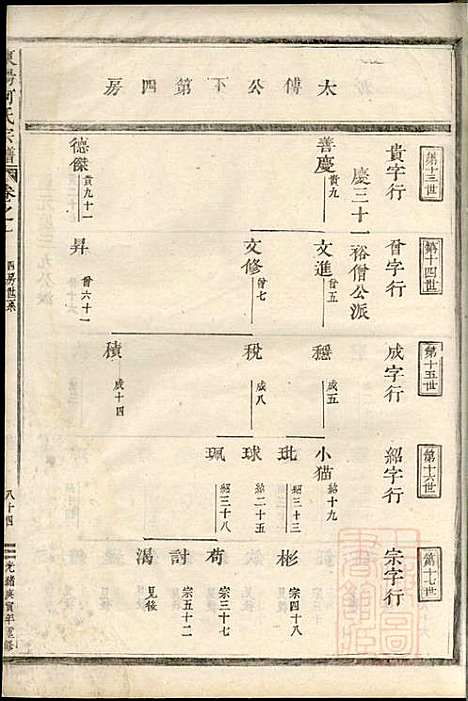 太傅公下第四房
第十三世
貴字行
慶三十一裕僧公派
善慶
貴九
德傑
貴九十一
第十四世
曾字行
文進
曾五
文修
曾七
昇
曾六十一
第十五世
成字行
穩
成五
稅
成八
積
成十四
第十六世
紹字行
小猫
紹十九
玭
紹三十三
球
紹二十五
珮
紹三十八
第十七世
宗字行
彬
宗四十八
苟
宗三十七
討
宗五十二
渴
見後
見後
東陽何氏宗譜
卷之一
四房世系
八十四
光緒庚寅年重修